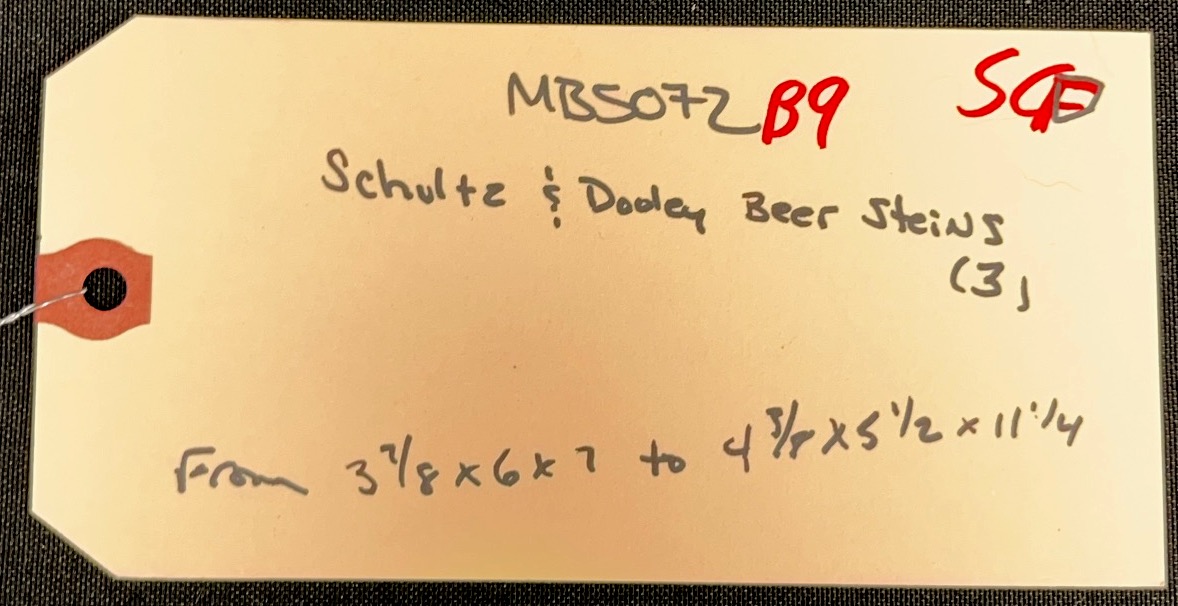 MB5072 B9
Schultz & Dooley Beer Steins
(3)
From 3 7/8 x 6 x 7 to 4 3/8 x 5 1/2 x 11 1/4